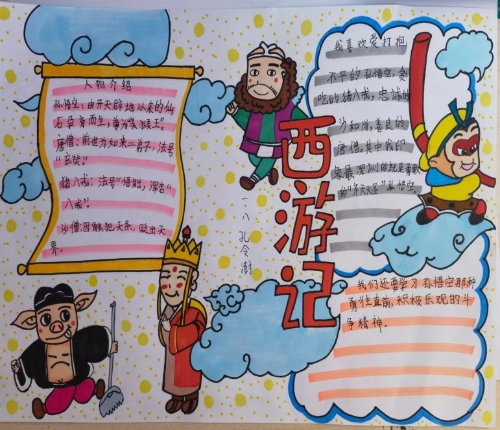 人物介绍
孙悟空:由开天辟地以来的仙
石孕育而生,尊为"美猴王"。
唐僧:前世为如来二弟子,法号
"玄奘"
猪八戒:法号"悟能,浑号"
八戒"。
沙僧:因触犯天条,贬出天
界。
西游记
一.八 孔令澍
我喜欢爱打抱
不平的孙悟空,贪
吃的猪八戒,忠诚的
沙和尚,善良的
唐僧。其中我印
象最深刻的就是勇敢
的"齐天大圣"孙悟空
我们还要学习孙悟空那种
勇往直前,积极乐观的斗
争精神。